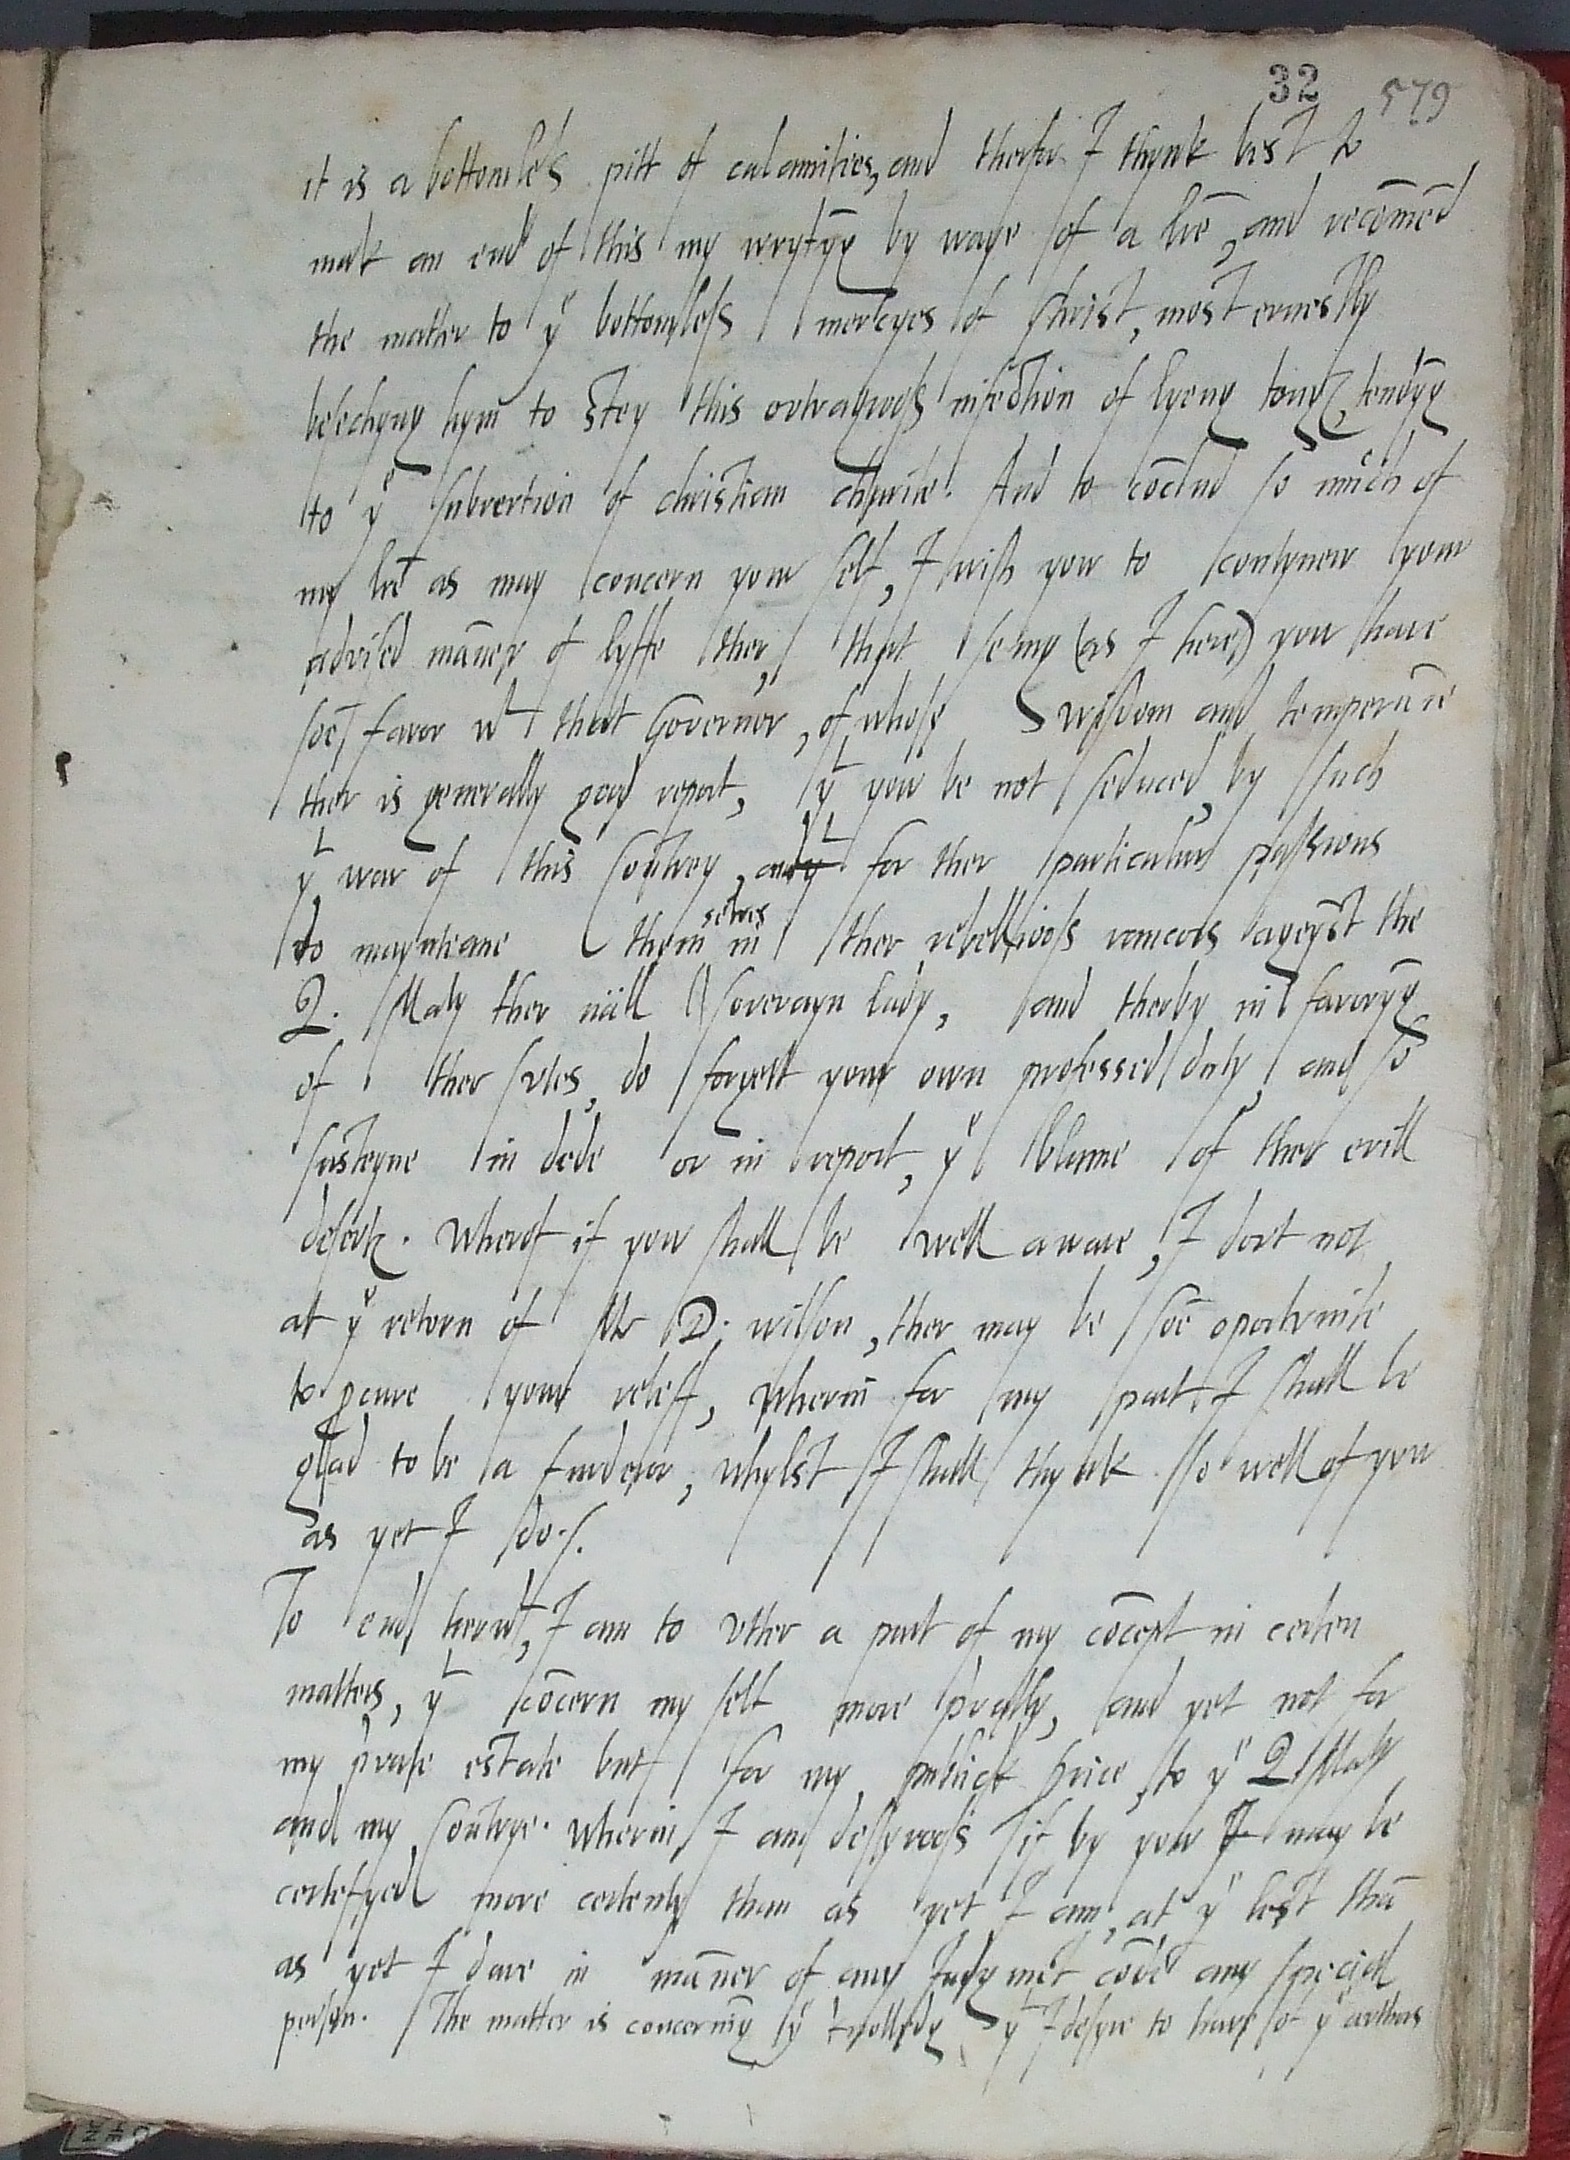 32 579
it is a bottomless pitt of calamities, and therfor I thynk best to
mak an end of this my wrytȳg by waye of a lr̄e, and recōmēd
the matter to yᵉ bottomless mercyes of Christ, most ernestly
besechyng hym to stey this outragyoss infection of lyeng tong, tendȳg
to yᵉ subvertion of christian charite. And to cōclud so much of
my lr̄e as may concern your self, I wish you to contynew your
advised māner of lyffe ther, that semg (as I here) you have
sōe favor wᵗ that Governor, of whose wisdom and temperāce
ther is generally good report, yᵗ you be not seduced, by such
yᵗ wer of this Coūtrey, and yᵗ for ther particular passions
do maynteane them selves in ther rebelliooss rancors ageyst the
Q. Maty ther nāll soverayn lady, and therby in favorȳg
of ther sutes, do forgett your own professed duty, and so
susteyne in dede or in report, yᵉ blame of ther evill
desert. Wherof if you shall be well aware, I dout not
at yᵉ retorn of Mr D. wilson, ther may be sōe oportunite
to pcure your releff, wherin for my part I shall be
glad to be a furderor, whylst I shall thynk so well of you
as yet I do./.
To end herwᵗ, I am to utter a part of my cōcept in certen
matters, yᵗ cōcern my self more pʳvatly, and yet not for
my pʳvate estate but for my publick service, to yᵉ Q Maty
and my Coūtrye. Wherin I am desyrooss if by you I may be
certefyed more certenly than as yet I am, at yᵉ lest thā
as yet I dare in māner of any Judgmēt cōdē any speciall
person. The matter is concernīg yᵉ knolledg yᵗ I desyre to have of yᵉ authors